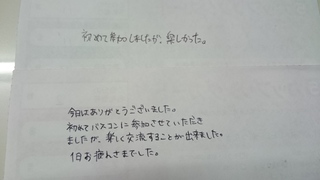 初めて参加しましたが、楽しかった。
今日はありがとうございました。
初めてバスコンに参加させていただき
ましたが、楽しく交流することが出来ました。
1日お疲れさまでした。